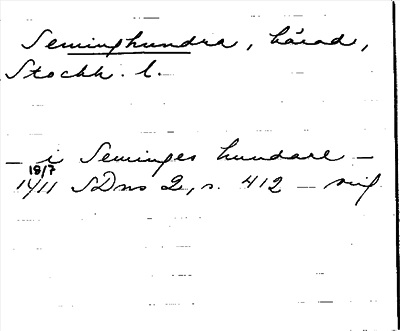 Seminghundra, härad,
Stockh. l.
– i Seminges hundare –
19/7
1411 SDns 2, s. 412 – orig